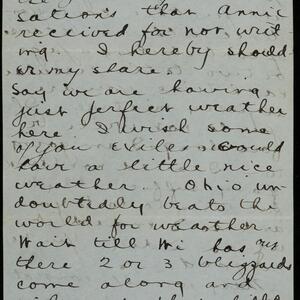 sations that Annie
received for not writ
ing. I hereby should-
er my share.
Say we are having
just perfect weather
here. I wish some
of you exiles could
have a little nice
weather. Ohio un-
doubtedly beats the
world for weather
Wait till Mi has
there 2 or 3 blizzards
come along and